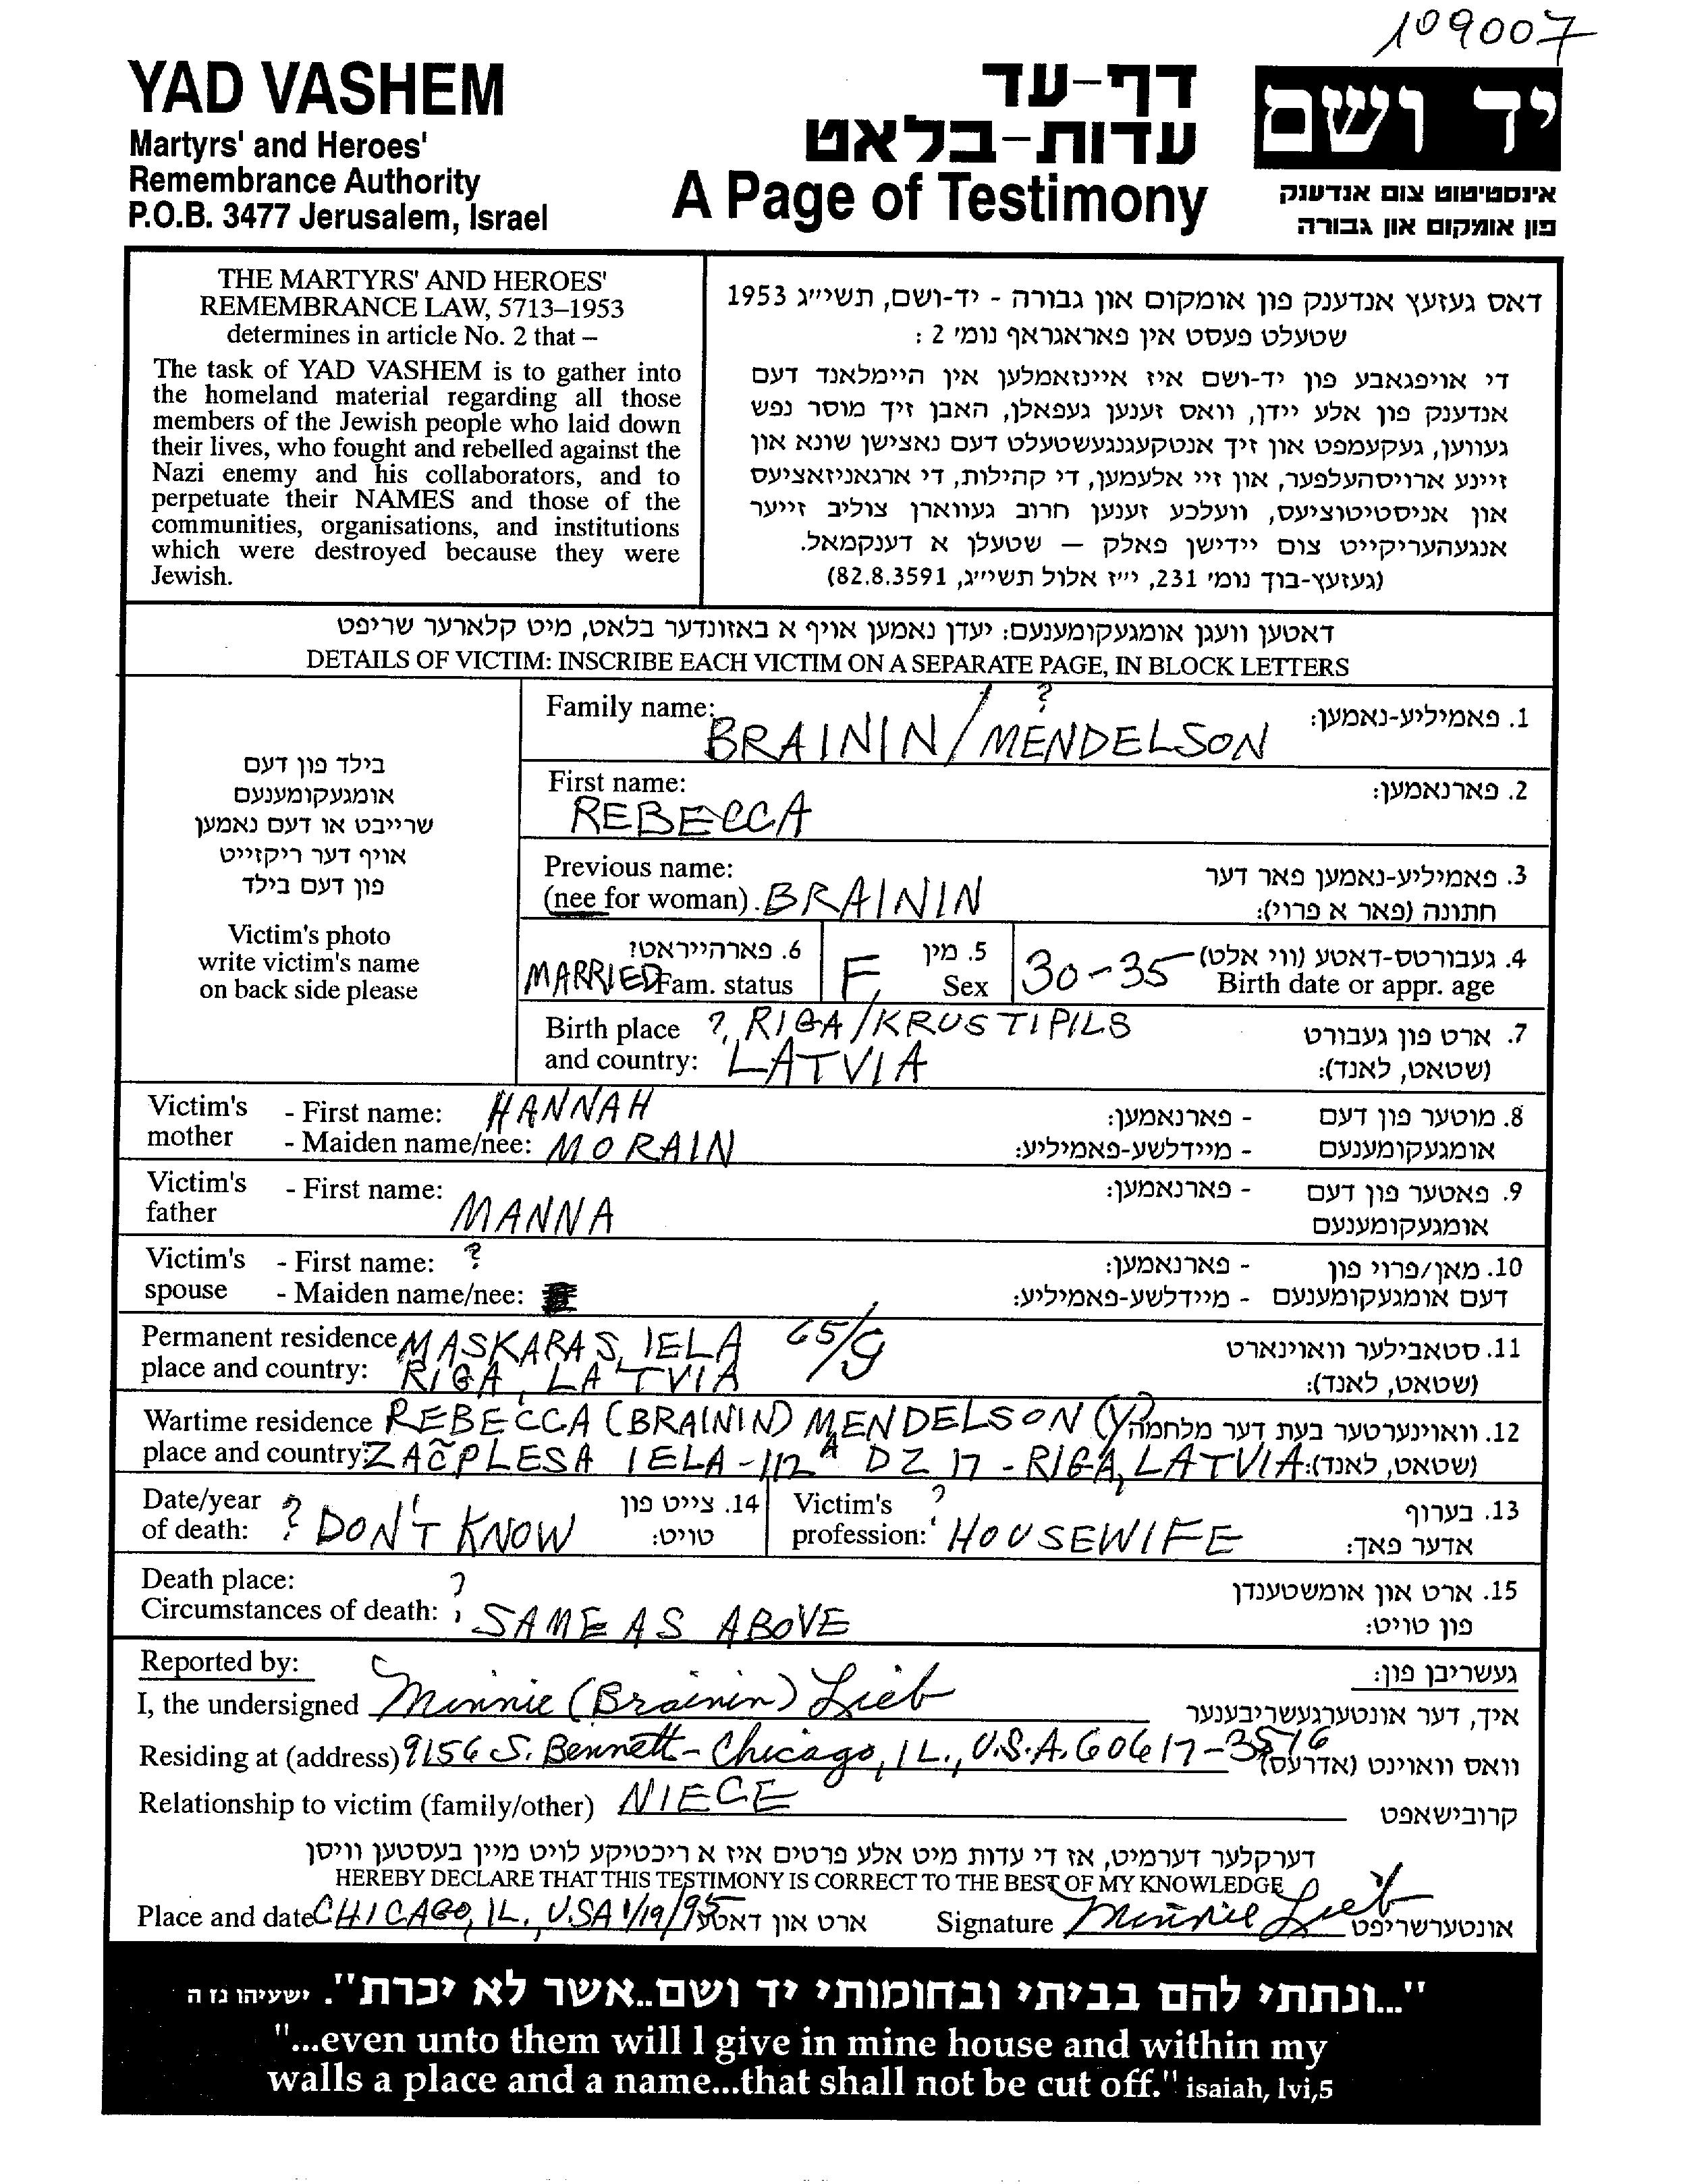 109007
YAD VASHEM
Martyrs' and Heroes'
Remembrance Authority
P.O.B. 3477 Jerusalem, Israel
דף-עד
עדות-בלאט
A Page of Testimony
יד ושם
אינסטיטוט צום אנדענק
פון אומקום און גבורה
THE MARTYRS' AND HEROES'
REMEMBRANCE LAW, 5713–1953
determines in article No. 2 that –
The task of YAD VASHEM is to gather into
the homeland material regarding all those
members of the Jewish people who laid down
their lives, who fought and rebelled against the
Nazi enemy and his collaborators, and to
perpetuate their NAMES and those of the
communities, organisations, and institutions
which were destroyed because they were
Jewish.
דאס געזעץ אנדענק פון אומקום און גבורה - יד-ושם, תשי״ג 1953
שטעלט פעסט אין פאראגראף נומ׳ 2 :
די אויפגאבע פון יד-ושם איז איינזאמלען אין היימלאנד דעם
אנדענק פון אלע יידן, וואס זענען געפאלן, האבן זיך מוסר נפש
געווען, געקעמפט און זיך אנטקעגנגעשטעלט דעם נאצישן שונא און
זיינע ארויסהעלפער, און זיי אלעמען, די קהילות, די ארגאניזאציעס
און אניסטיטוציעס, וועלכע זענען חרוב געווארן צוליב זייער
אנגעהעריקייט צום יידישן פאלק — שטעלן א דענקמאל.
(געזעץ-בוך נומ׳ 231, י״ז אלול תשי״ג, 82.8.3591)
דאטען וועגן אומגעקומענעם: יעדן נאמען אויף א באזונדער בלאט, מיט קלארער שריפט
DETAILS OF VICTIM: INSCRIBE EACH VICTIM ON A SEPARATE PAGE, IN BLOCK LETTERS
בילד פון דעם
אומגעקומענעם
שרייבט או דעם נאמען
אויף דער ריקזייט
פון דעם בילד
Victim's photo
write victim's name
on back side please
Family name: BRAININ / ? MENDELSON 1. פאמיליע-נאמען:
First name: REBECCA 2. פארנאמען:
Previous name: 3. פאמיליע-נאמען פאר דער
(nee for woman). BRAININ חתונה (פאר א פרוי):
6. פארהייראט? 5. מין 4. געבורטס-דאטע (ווי אלט)
MARRIED Fam. status F Sex 30-35 Birth date or appr. age
Birth place ? RIGA/KRUSTIPILS 7. ארט פון געבורט
and country: LATVIA (שטאט, לאנד):
Victim's - First name: HANNAH - פארנאמען: 8. מוטער פון דעם
mother - Maiden name/nee: MORAIN - מיידלשע-פאמיליע: אומגעקומענעם
Victim's - First name: MANNA - פארנאמען: 9. פאטער פון דעם
father אומגעקומענעם
Victim's - First name: ? - פארנאמען: 10. מאן/פרוי פון
spouse - Maiden name/nee: - מיידלשע-פאמיליע: דעם אומגעקומענעם
Permanent residence MASKARAS IELA 65/9 11. סטאבילער וואוינארט
place and country: RIGA, LATVIA (שטאט, לאנד):
Wartime residence REBECCA (BRAININ) MENDELSON (?) 12. וואוינערטער בעת דער מלחמה
place and country: ZAČPLESA IELA - 112 A DZ 17 - RIGA, LATVIA (שטאט, לאנד):
Date/year 14. צייט פון Victim's ? 13. בערוף
of death: ? DON'T KNOW טויט: profession: HOUSEWIFE אדער פאך:
Death place: ? 15. ארט און אומשטענדן
Circumstances of death: SAME AS ABOVE פון טויט:
Reported by: געשריבן פון:
I, the undersigned Minnie (Brainin) Lieb איך, דער אונטערגעשריבענער
Residing at (address) 9156 S. Bennett - Chicago, IL., U.S.A. 60617-3516 וואס וואוינט (אדרעס)
Relationship to victim (family/other) NIECE קרובישאפט
דערקלער דערמיט, אז די עדות מיט אלע פרטים איז א ריכטיקע לויט מיין בעסטען וויסן
HEREBY DECLARE THAT THIS TESTIMONY IS CORRECT TO THE BEST OF MY KNOWLEDGE
Place and date CHICAGO, IL, USA 1/19/95 ארט און דאטע Signature Minnie Lieb אונטערשריפט
"...ונתתי להם בביתי ובחומותי יד ושם..אשר לא יכרת". ישעיהו נז ה
"...even unto them will I give in mine house and within my
walls a place and a name...that shall not be cut off." isaiah, lvi,5